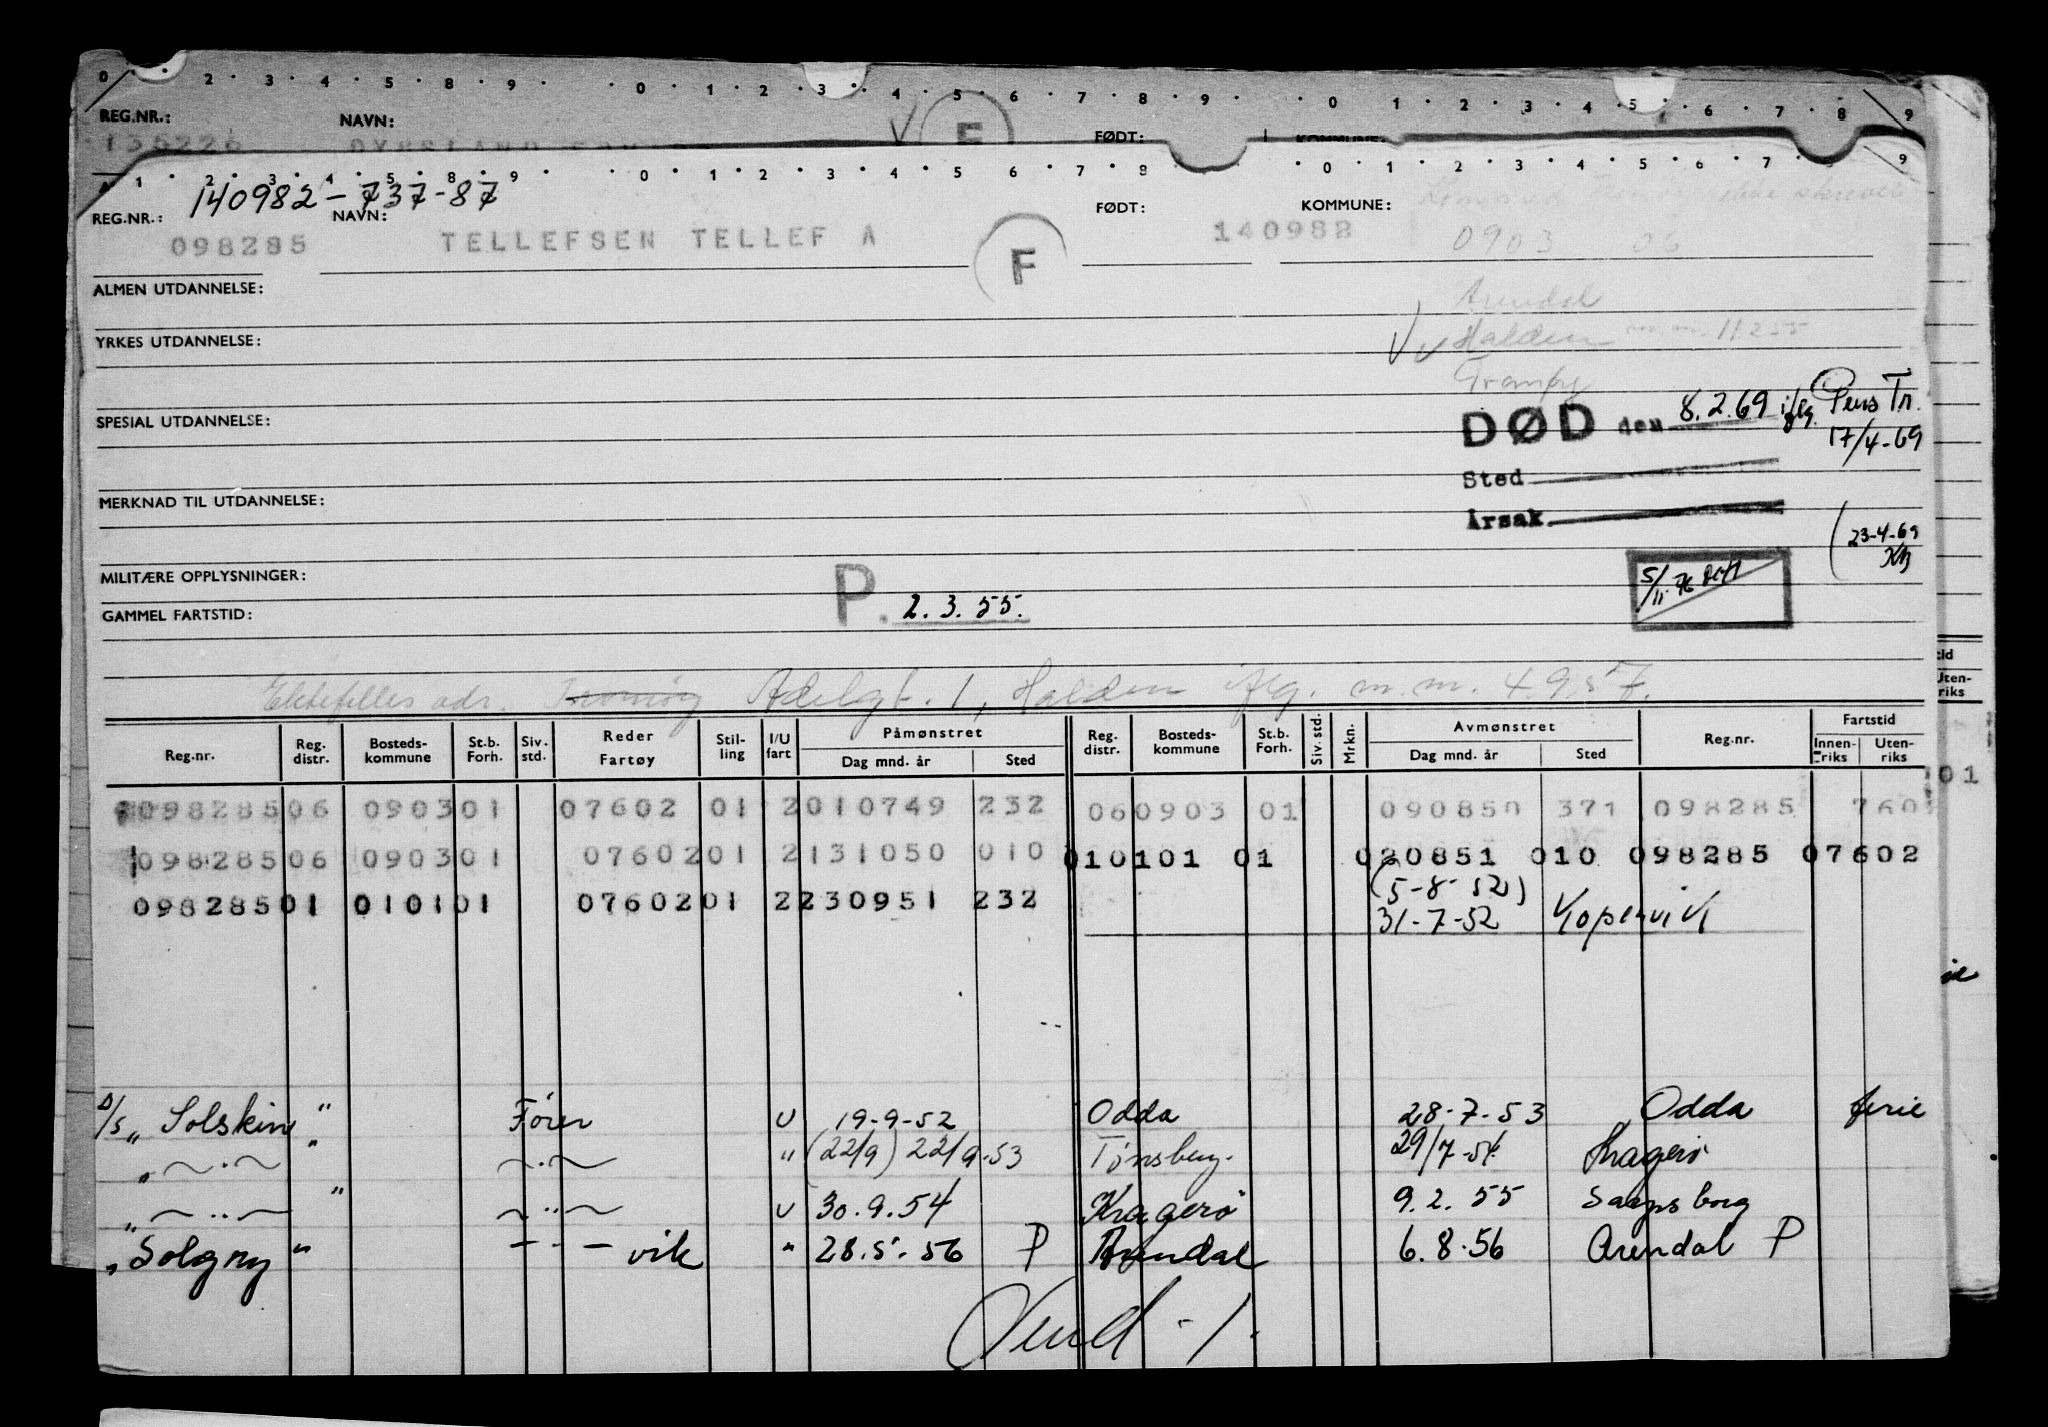 0 2 3 4 5 8 9 0 1 2 3 4 5 6 7 8 9 0 1 2 3 4 5 6 7 8 9
REG.NR.: NAVN: FØDT: KOMMUNE:
135226
1 2 3 4 5 8 9 0 1 2 3 4 5 6 7 8 0 1 2 3 4 5 6 7 9
140982-737-87
REG.NR.: NAVN: FØDT: KOMMUNE:
098285 TELLEFSEN TELLEF A F 140982 0903 06
ALMEN UTDANNELSE:
Arendal
YRKES UTDANNELSE: Halden m.m. 11255
Tromøy
SPESIAL UTDANNELSE: DØD den 8.2.69 iflg. Pens Tr.
17/4-69
Sted
MERKNAD TIL UTDANNELSE:
Årsak
23-4-69
MILITÆRE OPPLYSNINGER: 5/11
GAMMEL FARTSTID: P. 2.3.55.
adr. Tromøy Adelgt. 1, Halden iflg. m.m. 4.9.57.
Reg.nr. Reg. distr. Bosteds-kommune St.b. Forh. Siv. std. Reder Fartøy Stil-ling I/U fart Påmønstret Dag mnd. år Sted Reg. distr. Bosteds-kommune St.b. Forh. Siv. std. Mrkn. Avmønstret Dag mnd. år Sted Reg.nr. Fartstid Innen-riks Uten-riks
098285 06 0903 01 07602 01 2 010749 232 06 0903 01 090850 371 098285 760
098285 06 0903 01 07602 01 2 131050 010 01 0101 01 020851 010 098285 07602
(5-8-52)
098285 01 0101 01 07602 01 2 230951 232
31-7-52 Kopervik
D/S „Solskin" Fører U 19-9-52 Odda 28-7-53 Odda ferie
„ " " (22/9) 22/9-53 Tønsberg. 29/7-54 Kragerø
„ " U 30.9.54 Kragerø 9.2.55 Sarpsborg
„Solgny" - - - vik " 28.5.56 P Arendal 6.8.56 Arendal P
Vend -/-